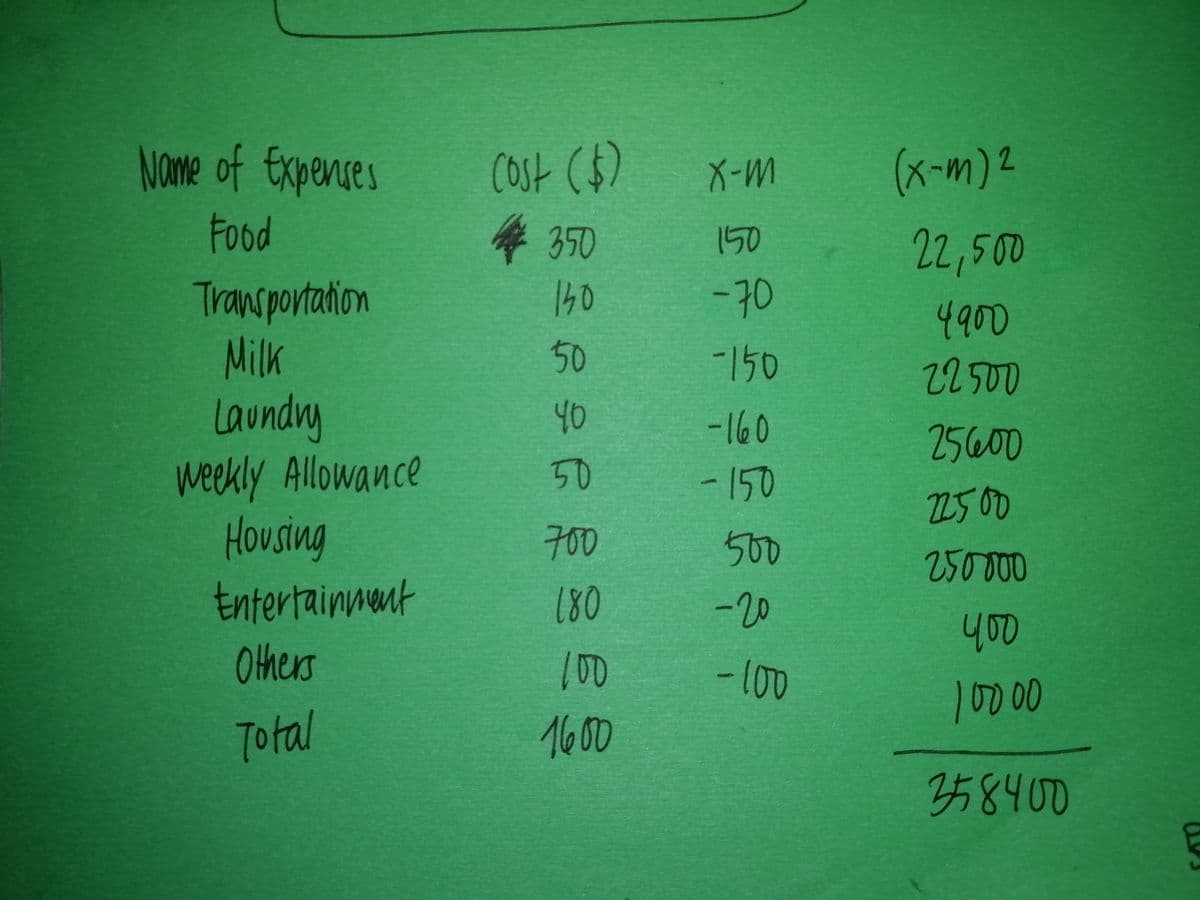 Name of Expenses Cost ($) x-m (x-m)2
Food 350 150 22,500
Transportation 130 -70 4900
Milk 50 -150 22500
Laundry 40 -160 25600
Weekly Allowance 50 -150 22500
Housing 700 500 250000
Entertainment 180 -20 400
Others 100 -100 10000
Total 1600
358400